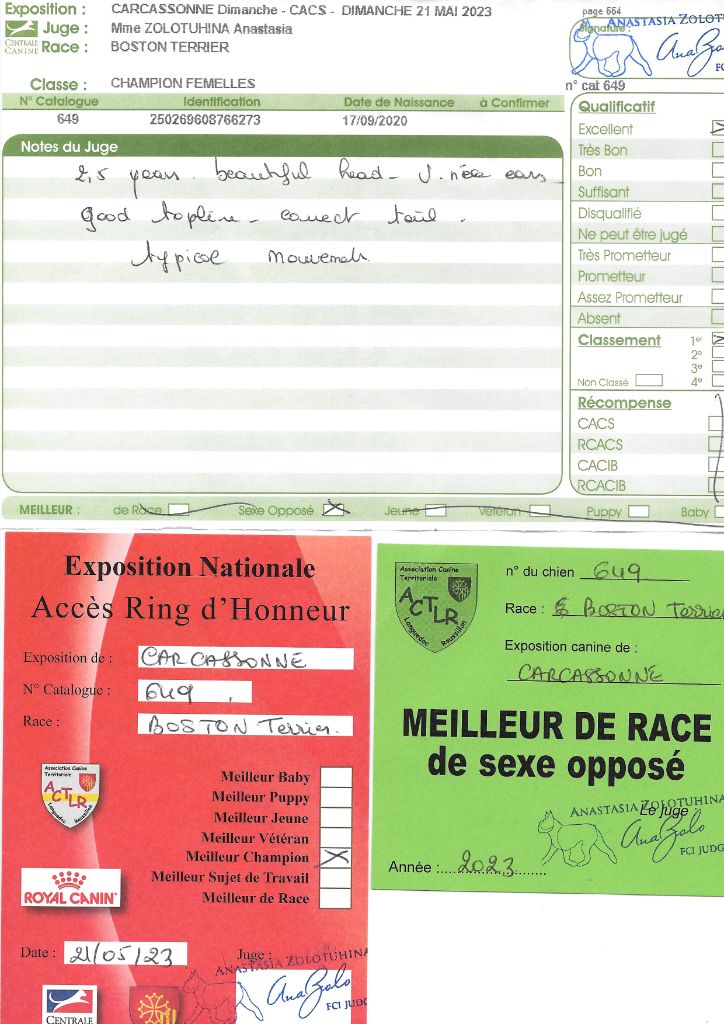 Exposition : CARCASSONNE Dimanche - CACS - DIMANCHE 21 MAI 2023
page 664
Juge : Mme ZOLOTUHINA Anastasia
Signature :
ANASTASIA ZOLOT
CENTRALE CANINE
Race : BOSTON TERRIER
FC
Classe : CHAMPION FEMELLES
n° cat 649
N° Catalogue Identification Date de Naissance à Confirmer
649 250269608766273 17/09/2020
Notes du Juge
2,5 years. beautiful head - V. nice ears,
good topline - correct tail.
typical mouvement
Qualificatif
Excellent
Très Bon
Bon
Suffisant
Disqualifié
Ne peut être jugé
Très Prometteur
Prometteur
Assez Prometteur
Absent
Classement 1er
2e
3e
Non Classé 4e
Récompense
CACS
RCACS
CACIB
RCACIB
MEILLEUR : de Race Sexe Opposé Jeune Vétéran Puppy Baby
Exposition Nationale
Accès Ring d'Honneur
Exposition de : CARCASSONNE
N° Catalogue : 649
Race : BOSTON Terrier.
Association Canine
Territoriale
ACTLR
Languedoc Roussillon
Meilleur Baby
Meilleur Puppy
Meilleur Jeune
Meilleur Vétéran
Meilleur Champion
Meilleur Sujet de Travail
Meilleur de Race
ROYAL CANIN
Date : 21/05/23
Juge :
ANASTASIA ZOLOTUHINA
Ana Zolo
FCI JUDG
CENTRALE
Association Canine
Territoriale
ACTLR
Languedoc Roussillon
n° du chien 649
Race : BOSTON Terrier
Exposition canine de :
CARCASSONNE
MEILLEUR DE RACE
de sexe opposé
ANASTASIA ZOLOTUHINA
Le juge
Ana Zolo
FCI JUDG
Année : 2023